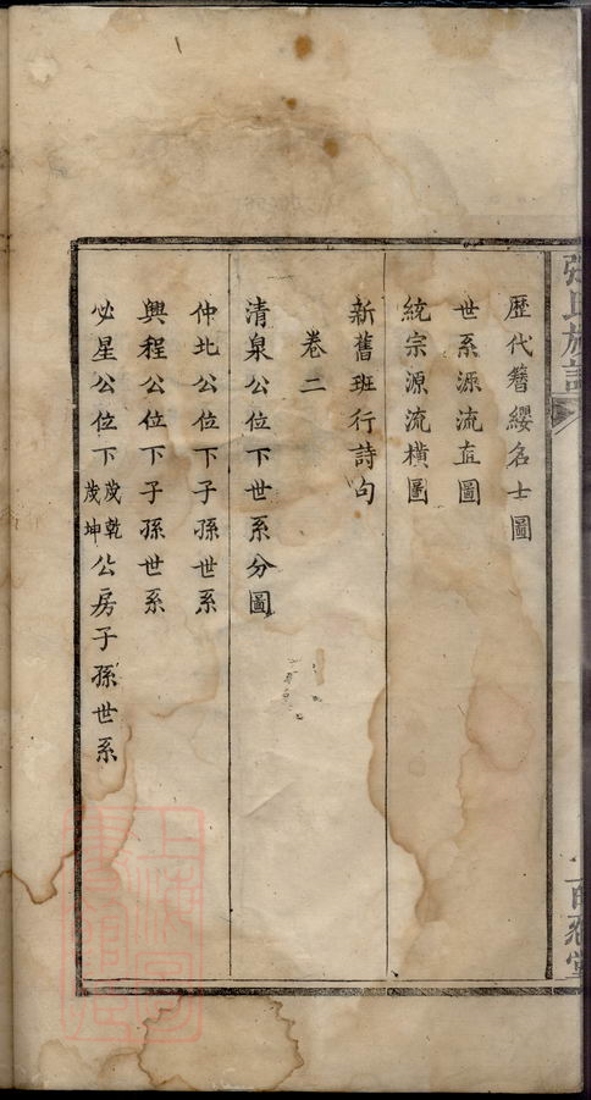 歷代簪纓名士圖
世系源流直圖
統宗源流橫圖
新舊班行詩句
卷二
清泉公位下世系分圖
仲北公位下子孫世系
興程公位下子孫世系
必星公位下茂乾茂坤公房子孫世系
張氏族譜
百忍堂
上海圖書館藏